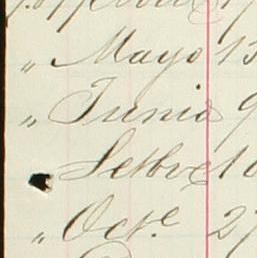 „ Mayo 13
„ Junio 9
Setbre 10
„ Octe. 27